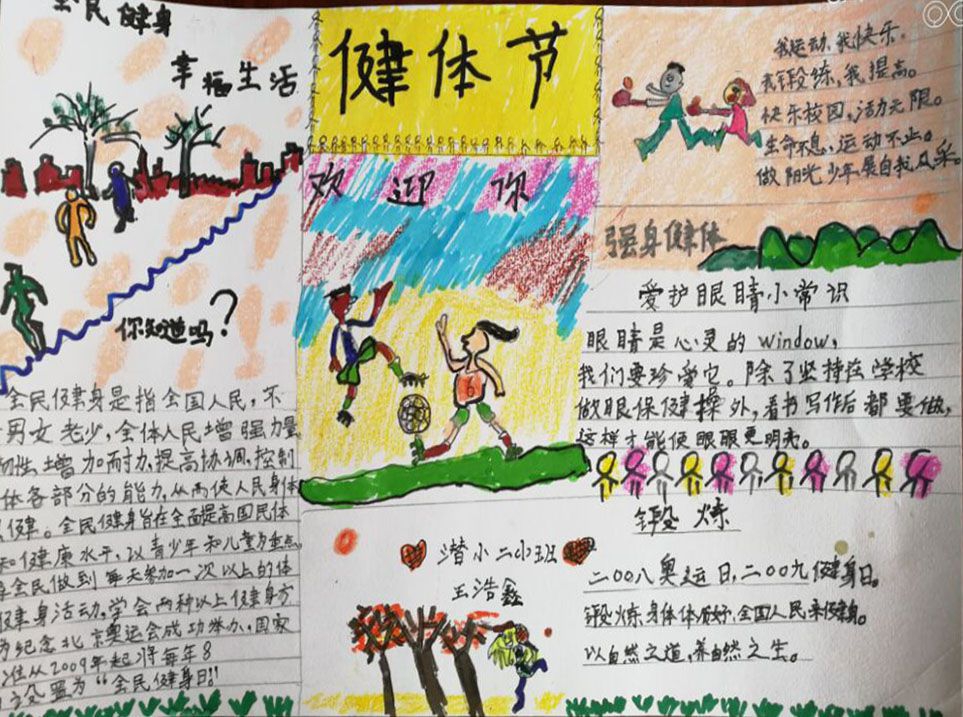 全民健身
幸福生活
你知道吗?
全民健身是指全国人民,不
男女老少,全体人民增强力量
韧性增加耐力,提高协调,控制
体各部分的能力,从而使人民身体
健。全民健身旨在全面提高国民体
和健康水平,以青少年和儿童为重点
全民做到每天参加一次以上的体
健身活动,学会两种以上健身方
为纪念北京奥运会成功举办,国家
准从2009年起将每年8
设置为“全民健身日!”
健体节
欢迎你
6
潜小二小班
王浩鑫
我运动,我快乐。
我锻练,我提高。
快乐校园,活力无限。
生命不息,运动不止。
做阳光少年展自我风采。
强身健体
爱护眼睛小常识
眼睛是心灵的window,
我们要珍爱它。除了坚持在学校
做眼保健操外,看书写作后都要做,
这样才能使眼眼更明亮。
锻炼
二00八奥运日,二00九健身日。
锻炼身体体质好,全国人民来健身。
以自然之道,养自然之生。